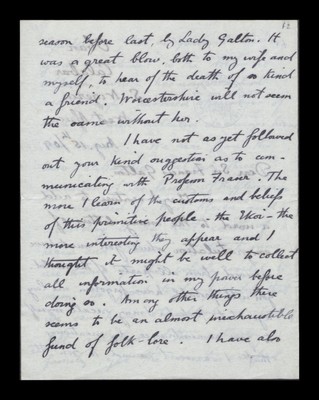 12
season before last, by Lady Galton. It
was a great blow, both to my wife and
myself, to hear of the death of so kind
a friend. Worcestershire will not seem
the same without her.
I have not as yet followed
out your kind suggestion as to com-
municating with Professor Frazer. The
more I learn of the customs and beliefs
of this primitive people - the Ekoi - the
more interesting they appear and I
thought it might be well to collect
all information in my power before
doing so. Among other things there
seems to be an almost inexhaustible
fund of folk-lore. I have also